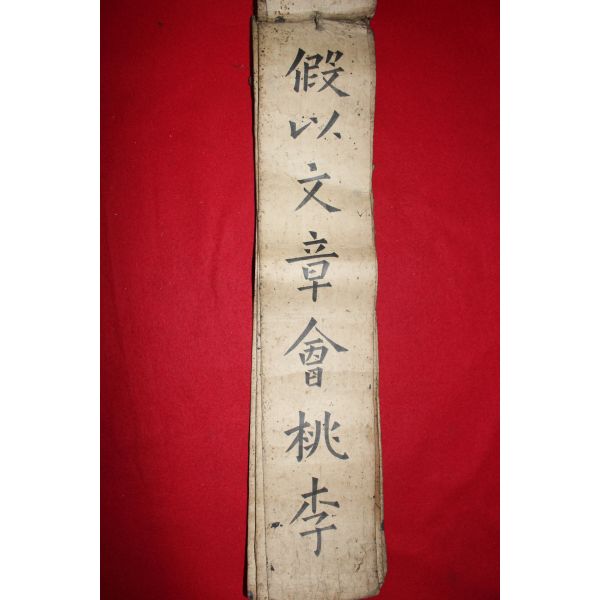 假以文章會桃李